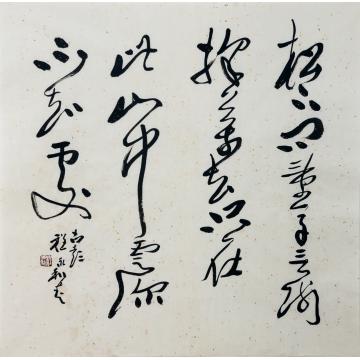 松下問童子言師
採藥去只在
此山中雲深
不知處
古彭